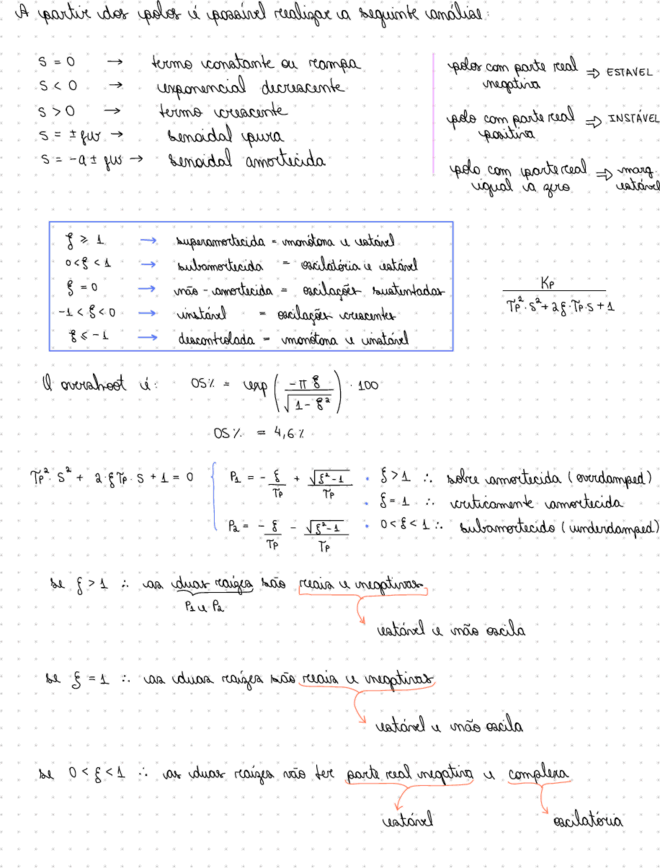 A partir dos polos é possível realizar a seguinte análise:
S = 0 → termo constante ou rampa
S < 0 → exponencial decrescente
S > 0 → termo crescente
S = ± jw → senoidal pura
S = -a ± jw → senoidal amortecida
polos com parte real negativa ⇒ ESTAVEL
polo com parte real positiva ⇒ INSTÁVEL
polo com parte real igual a zero ⇒ marg. estável
ξ ≥ 1 → superamortecida = monótona e estável
0<ξ<1 → subamortecida = oscilatória e estável
ξ = 0 → não-amortecida = oscilações sustentadas
-1<ξ<0 → instável = oscilações crescentes
ξ ≤ -1 → descontrolada = monótona e instável
Kp / (Tp²·S² + 2ξ·Tp·S + 1)
O overshoot é: OS% = exp(-πξ / √(1-ξ²)) · 100
OS% = 4,6%
Tp²·S² + 2ξTp·S + 1 = 0
P1 = -ξ/Tp + √(ξ²-1)/Tp
P2 = -ξ/Tp - √(ξ²-1)/Tp
• ξ>1 ∴ sobre amortecida (overdamped)
• ξ=1 ∴ criticamente amortecida
• 0<ξ<1 ∴ subamortecido (underdamped)
se ξ>1 ∴ as duas raízes são reais e negativas
P1 e P2
estável e não oscila
se ξ=1 ∴ as duas raízes são reais e negativas
estável e não oscila
se 0<ξ<1 ∴ as duas raízes vão ter parte real negativa e complexa
estável oscilatória